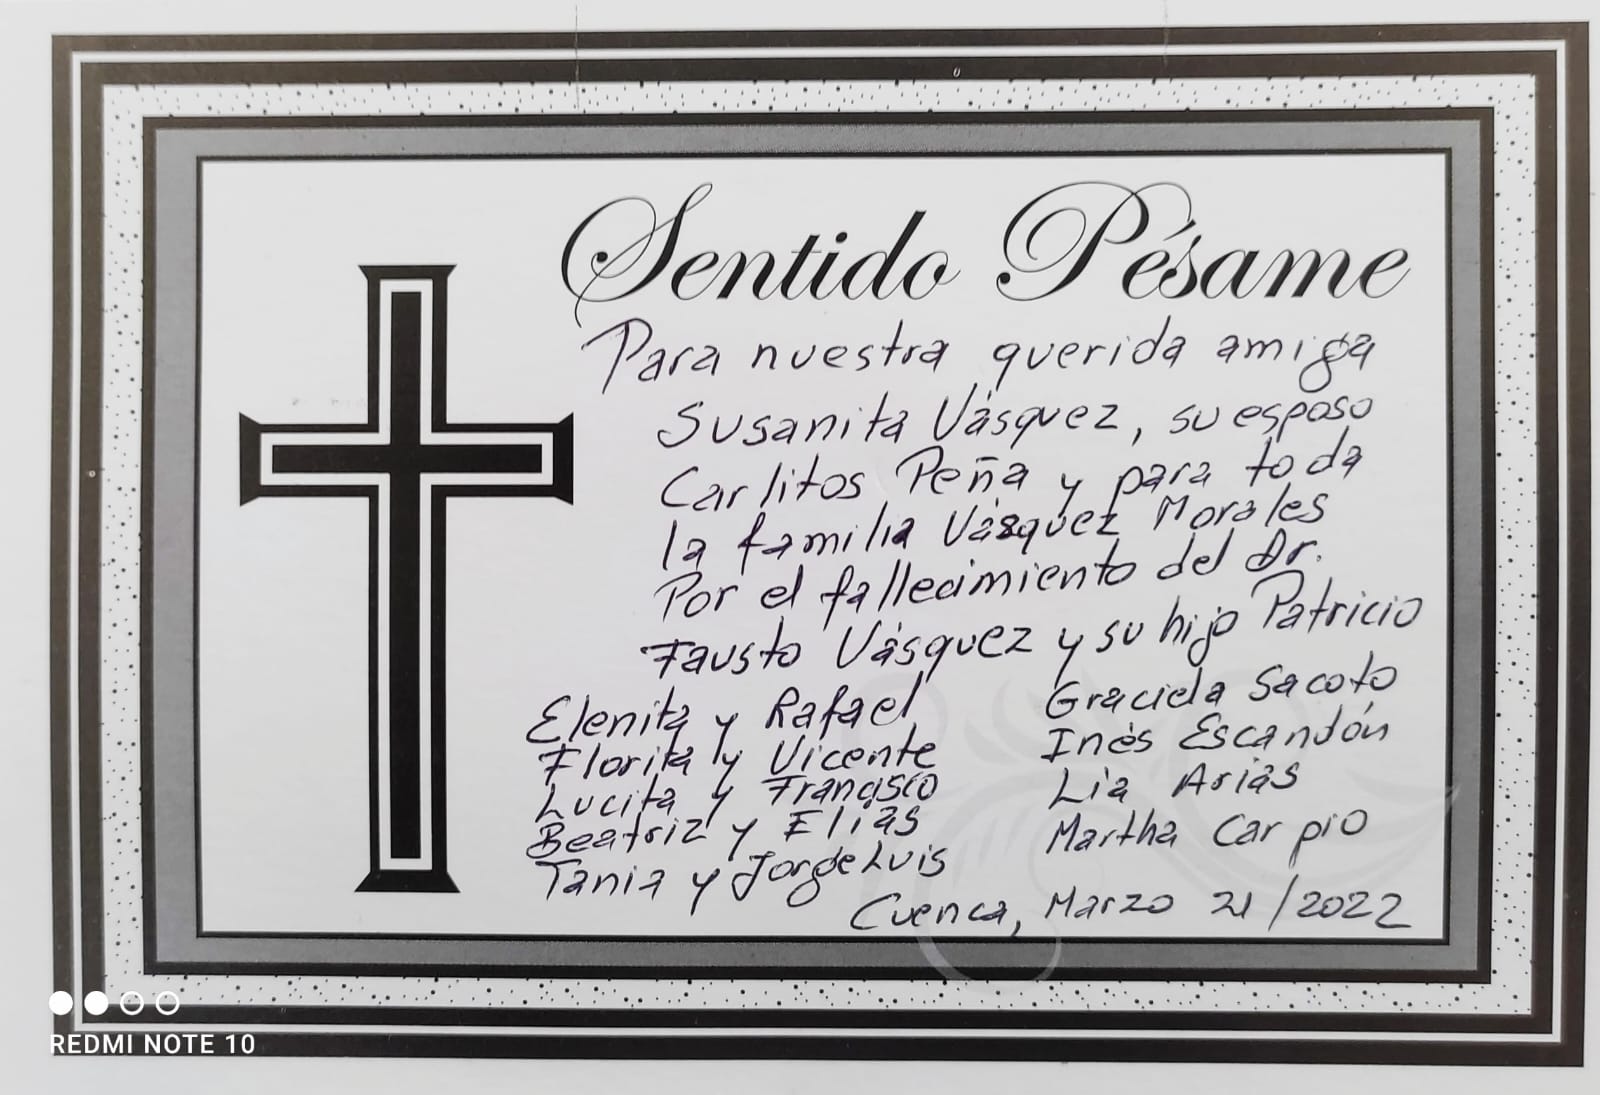 Sentido Pésame
Para nuestra querida amiga
Susanita Vásquez, su esposo
Carlitos Peña y para toda
la familia Vásquez Morales
Por el fallecimiento del Dr.
Fausto Vásquez y su hijo Patricio
Elenita y Rafael
Florita y Vicente
Lucita y Francisco
Beatriz y Elías
Tania y Jorge Luis
Graciela Sacoto
Inés Escandón
Lia Arias
Martha Carpio
Cuenca, Marzo 21/2022
REDMI NOTE 10